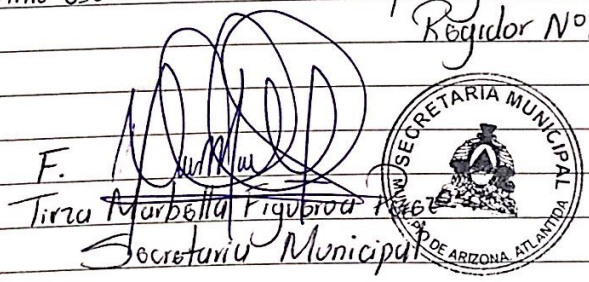 Regidor Nº
F.
Tirza Marbella Figueroa
Secretaria Municipal
SECRETARIA MUNICIPAL
MUNICIPIO DE ARIZONA, ATLANTIDA